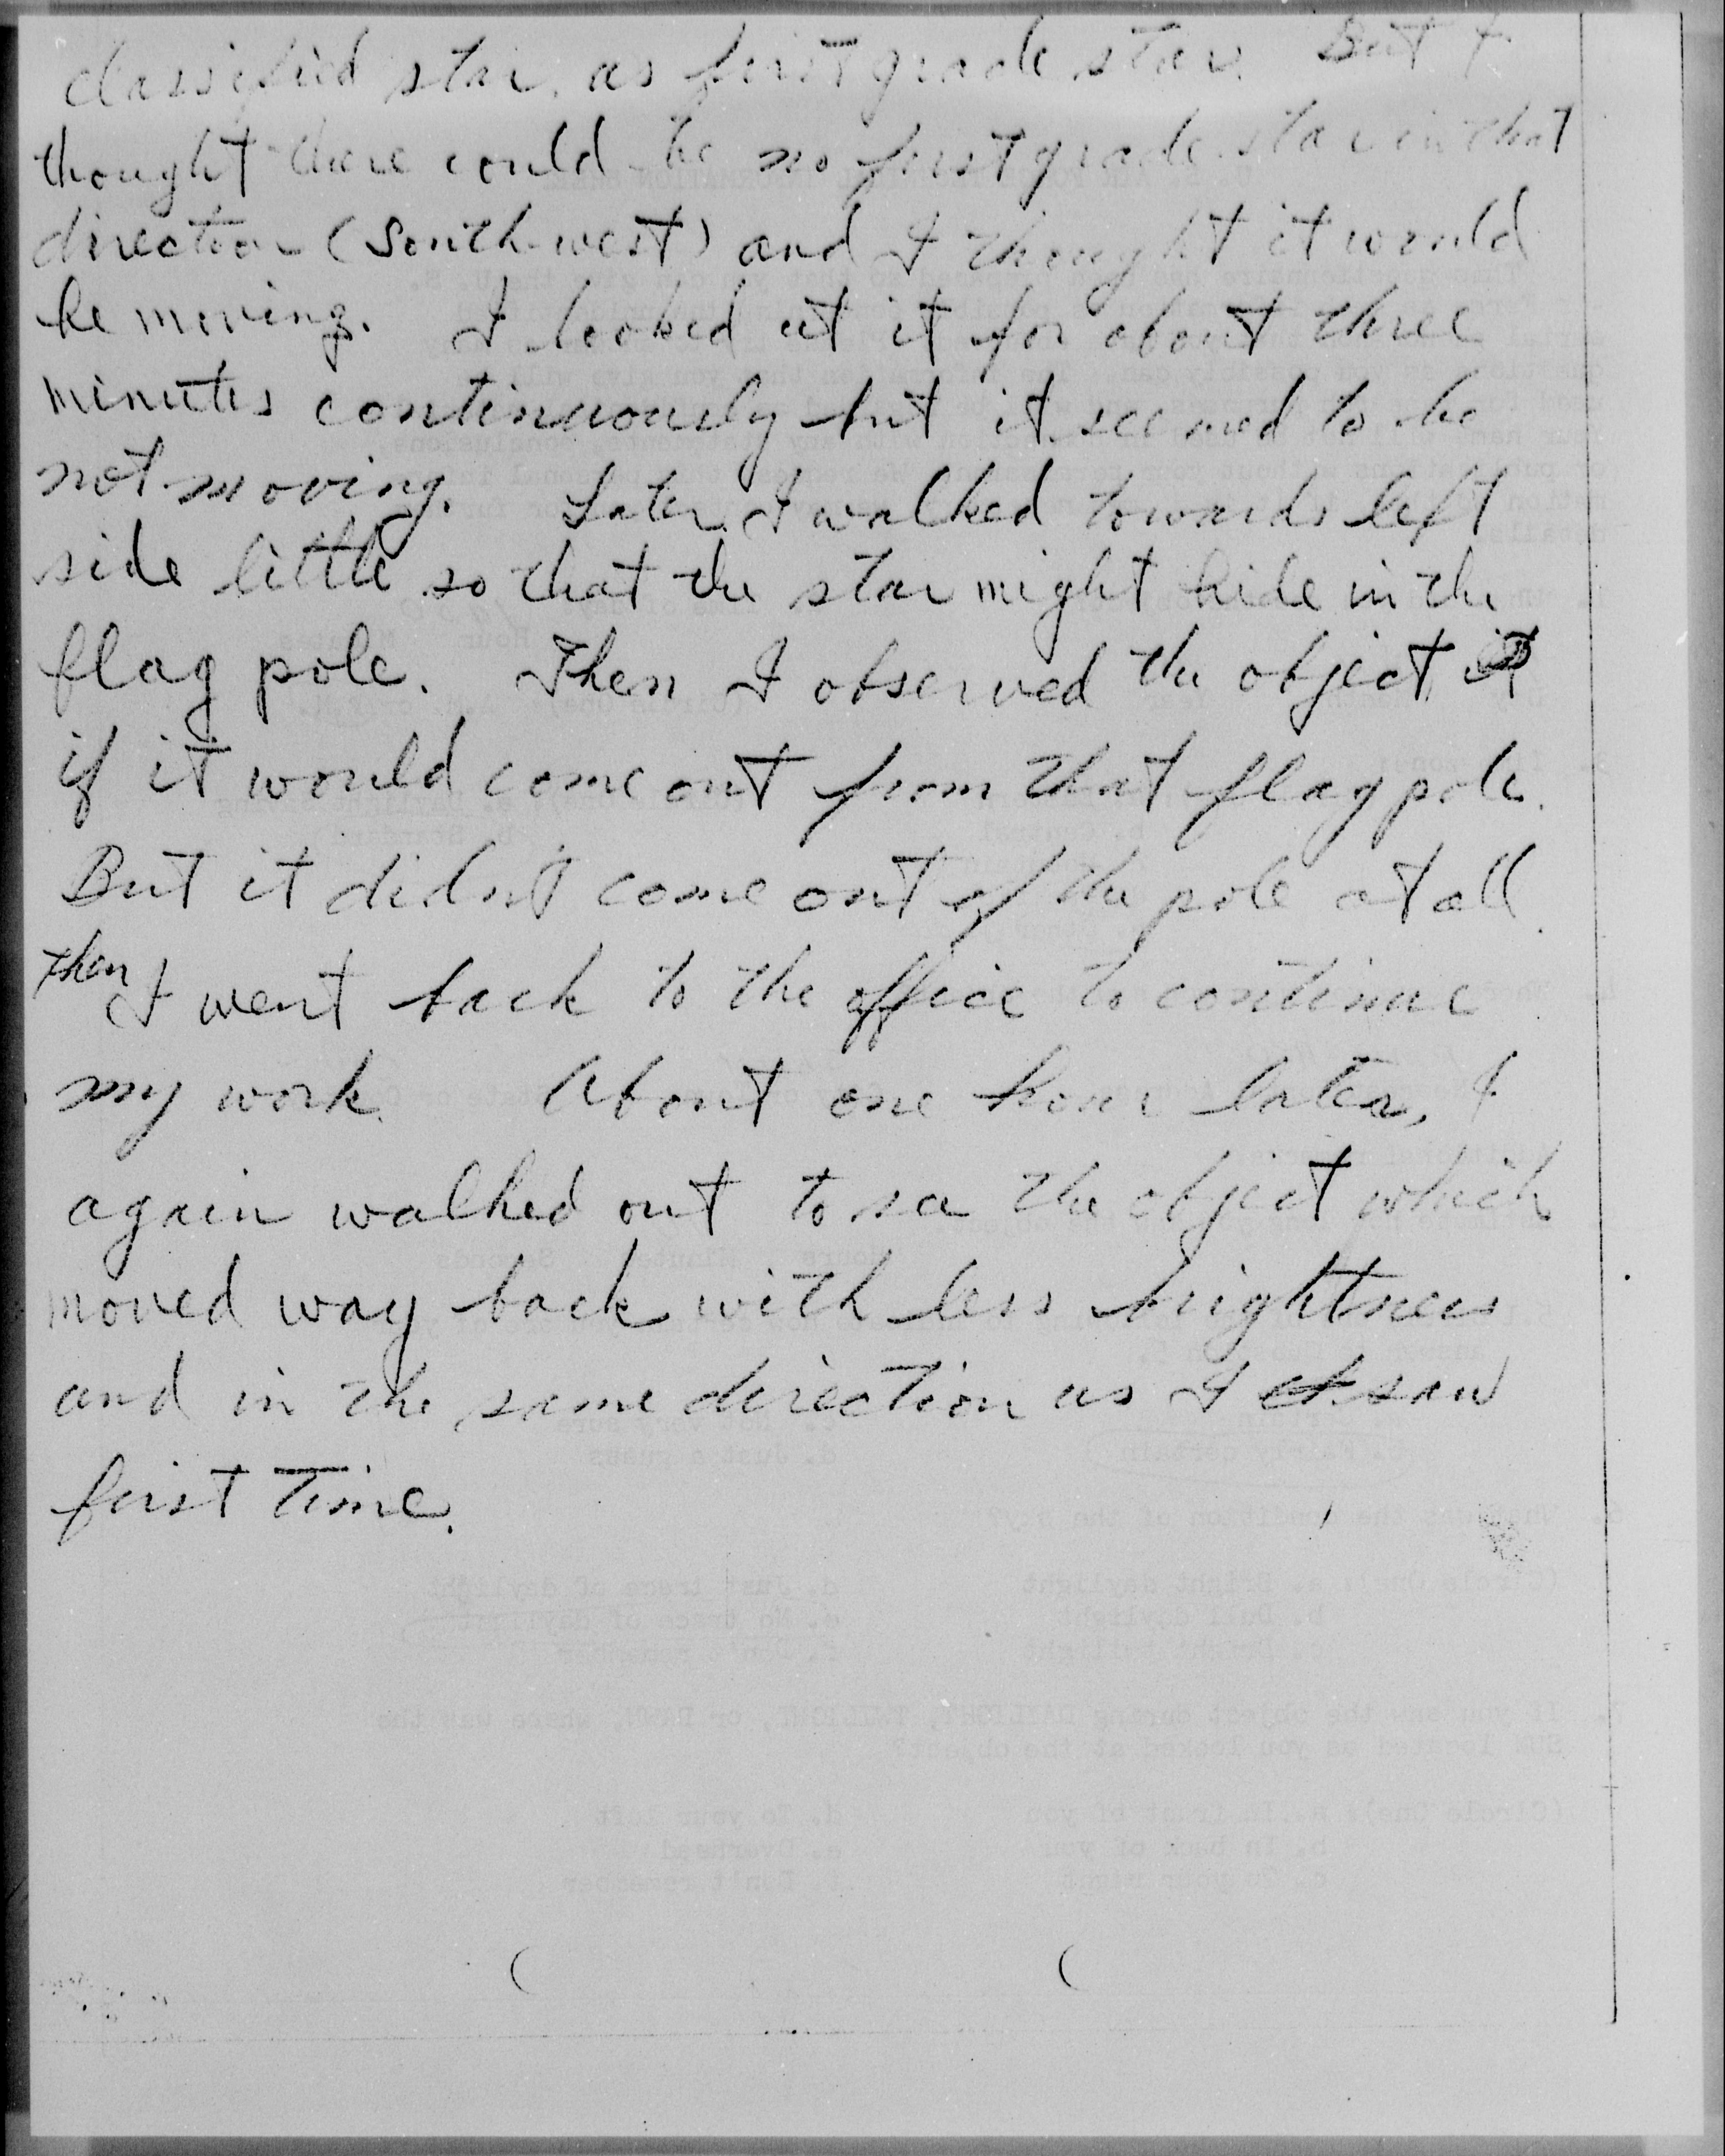 classified star, as first grade star. But I
thought there could be no first grade star in that
direction (South-west) and I thought it would
be moving. I looked at it for about three
minutes continuously but it seemed to be
not moving. Later I walked towards left
side little so that the star might hide in the
flag pole. Then I observed the object
if it would come out from that flag pole.
But it didn't come out of the pole at all.
then I went back to the office to continue
my work. About one hour later, I
again walked out to see the object which
moved way back with less brightness
and in the same direction as I saw
first time.